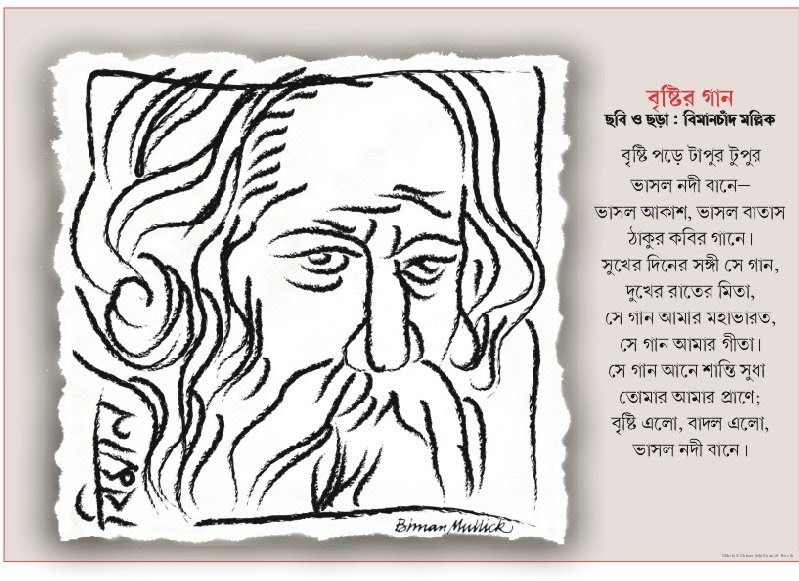 বৃষ্টির গান
ছবি ও ছড়া : বিমানচাঁদ মল্লিক
বৃষ্টি পড়ে টাপুর টুপুর
ভাসল নদী বানে–
ভাসল আকাশ, ভাসল বাতাস
ঠাকুর কবির গানে।
সুখের দিনের সঙ্গী সে গান,
দুখের রাতের মিতা,
সে গান আমার মহাভারত,
সে গান আমার গীতা।
সে গান আনে শান্তি সুধা
তোমার আমার প্রাণে;
বৃষ্টি এলো, বাদল এলো,
ভাসল নদী বানে।
বিমান
Biman Mullick